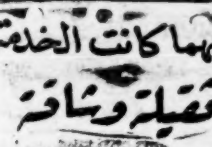 مهما كانت الخدمة
ثقيلة وشاقة